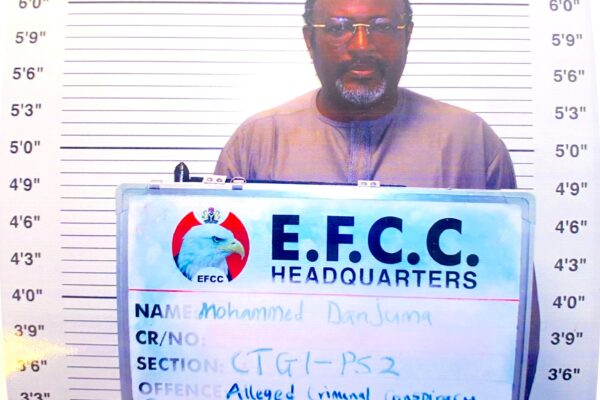 6'0" 6'0"
5'9" 5'9"
5'6" 5'6"
5'3" 5'3"
5'0" 5'0"
4'9" 4'9"
4'6" 4'6"
4'3" 4'3"
4'0" 4'0"
3'9" 3'9"
3'6" 3'6"
3'3"
EFCC
E.F.C.C.
HEADQUARTERS
NAME: Mohammed Danjuma
CR/NO:
SECTION: CTGI-PS2
OFFENCE Alleged Criminal Conspiracy